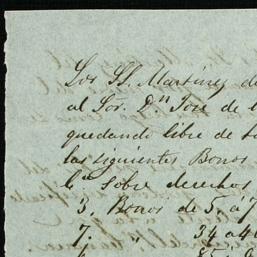 Los SS. Martinez de
al Sor. Dn José de
quedando libre de
las siguientes Bonos
sobre derechos
3. Bonos de 5, á 7
7. " 34 a 4